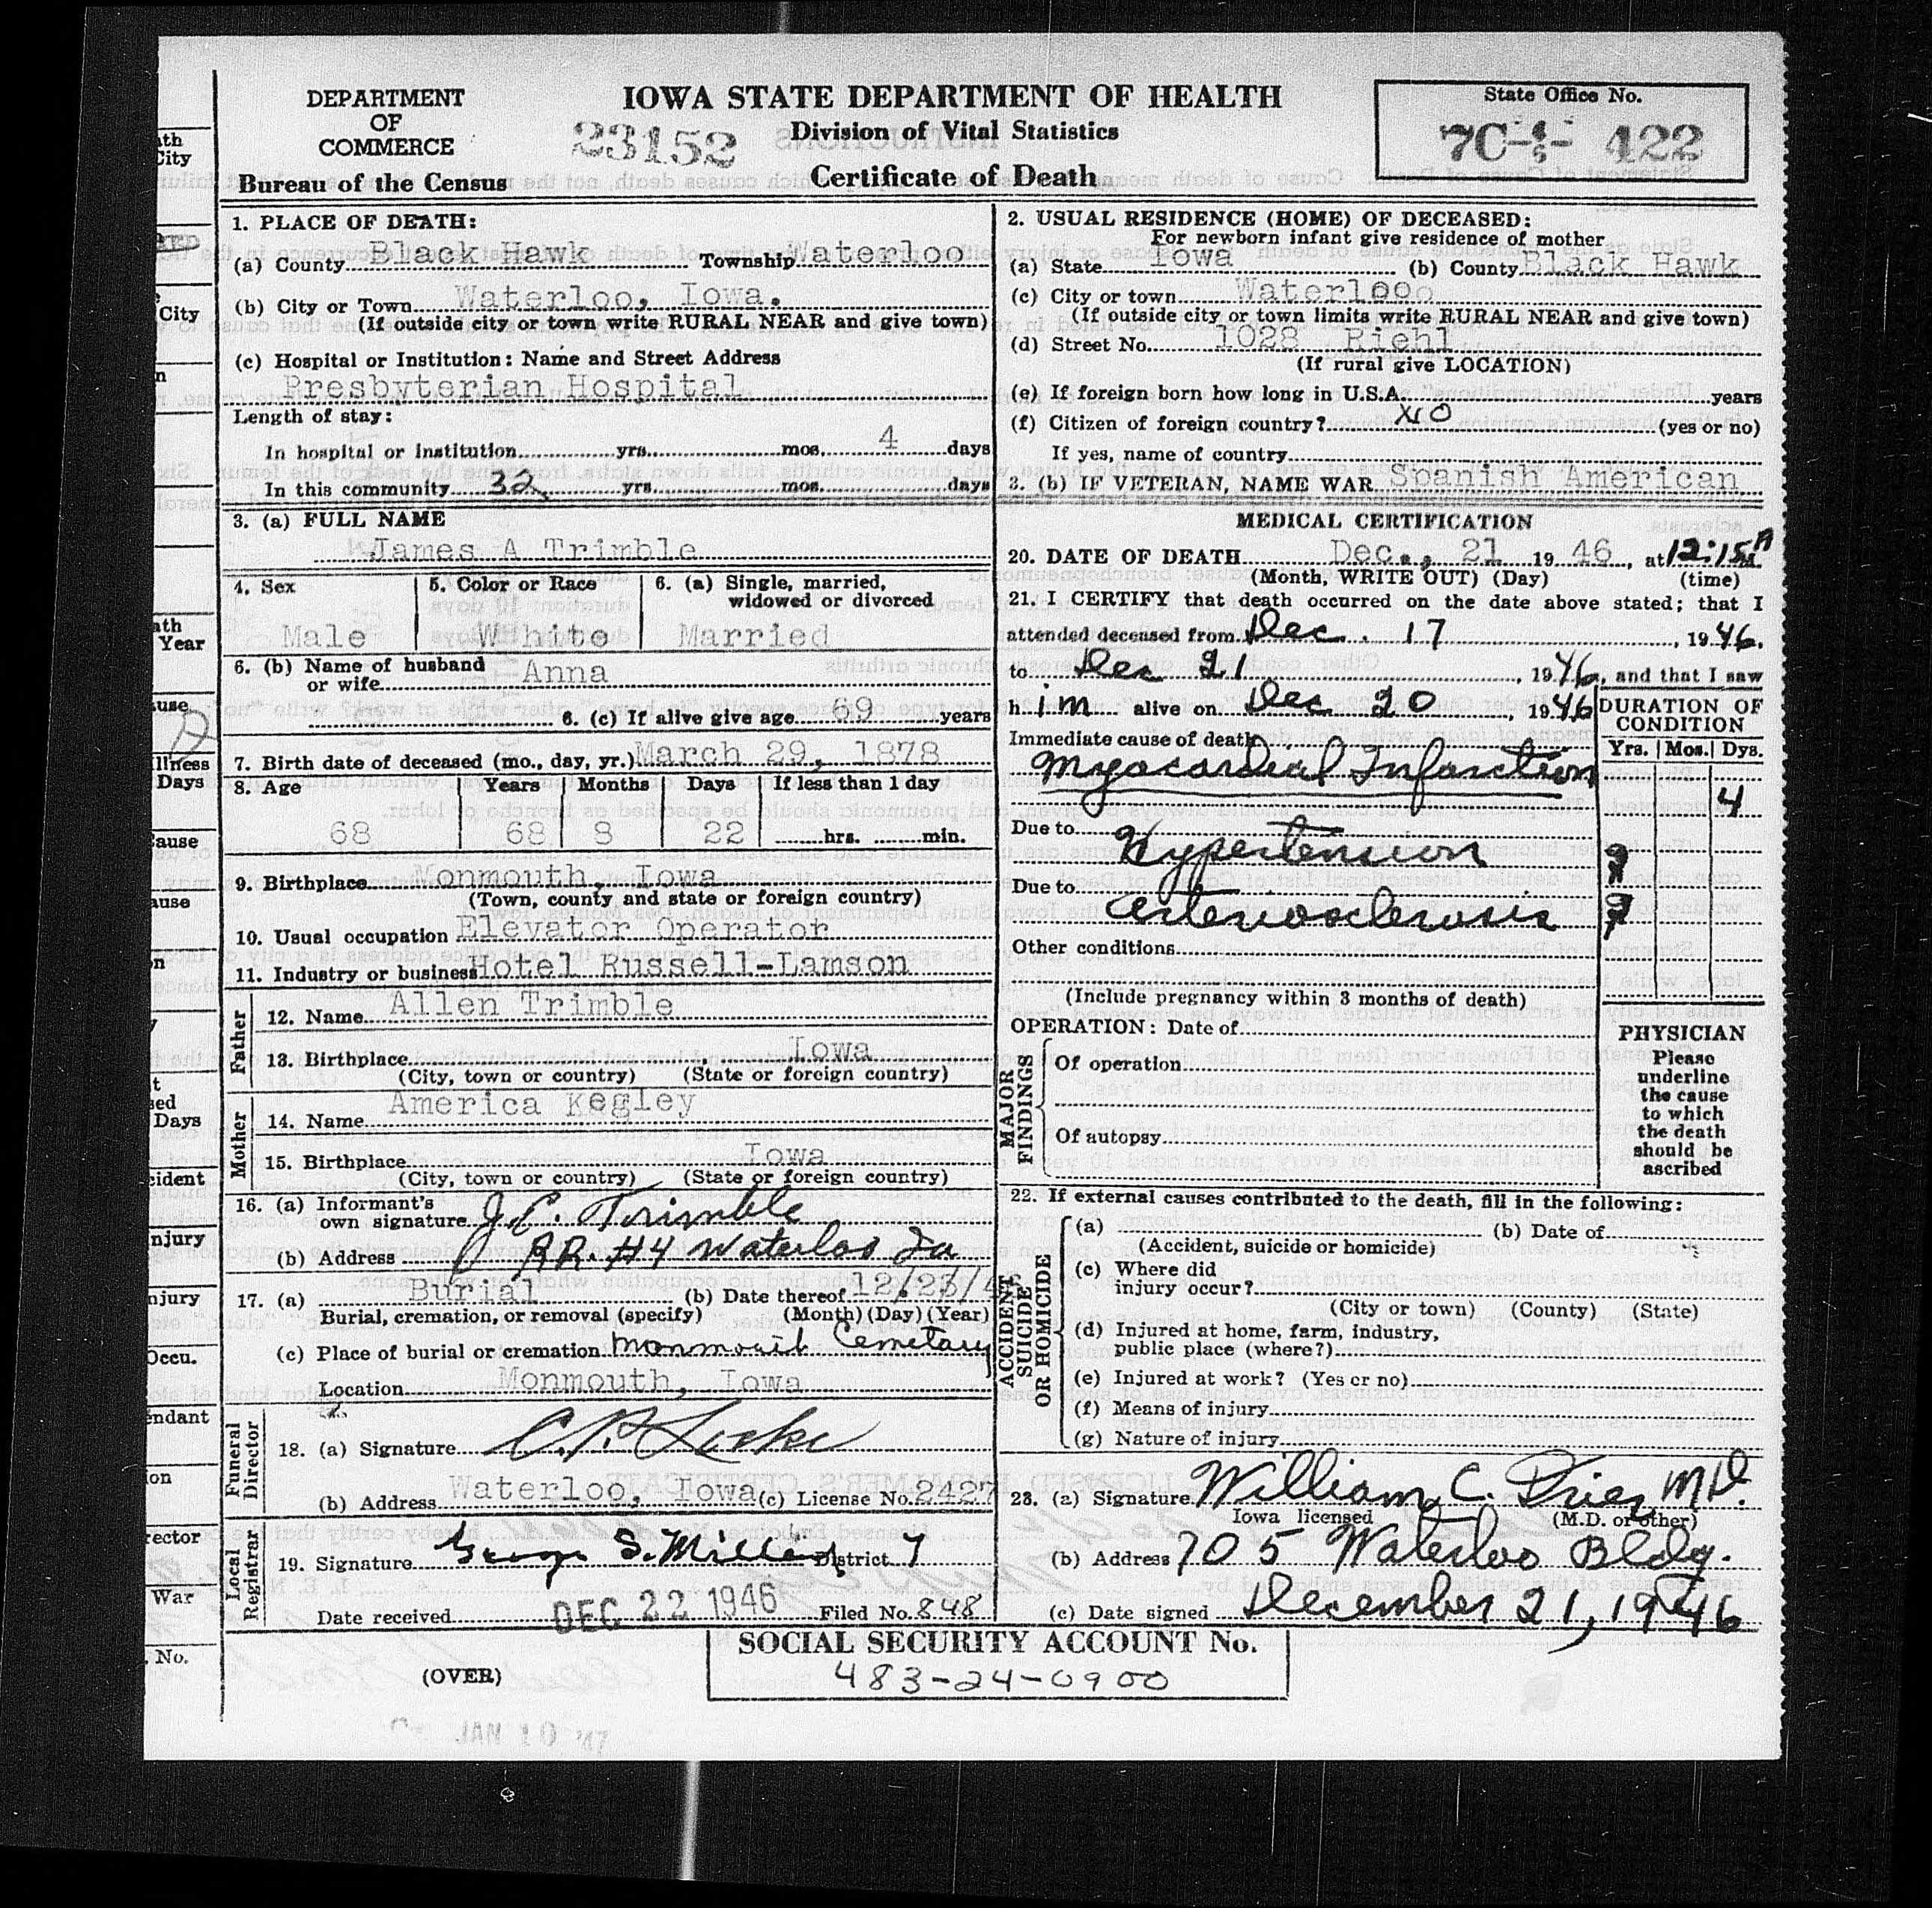 DEPARTMENT
OF
COMMERCE
Bureau of the Census
IOWA STATE DEPARTMENT OF HEALTH
23152 Division of Vital Statistics
Certificate of Death
State Office No.
422
1. PLACE OF DEATH:
(a) County Black Hawk Township Waterloo
(b) City or Town Waterloo, Iowa.
(If outside city or town write RURAL NEAR and give town)
(c) Hospital or Institution: Name and Street Address
Presbyterian Hospital
Length of stay:
In hospital or institution yrs. mos. 4 days
In this community 32 yrs. mos. days
2. USUAL RESIDENCE (HOME) OF DECEASED:
For newborn infant give residence of mother
(a) State Iowa (b) County Black Hawk
(c) City or town Waterloo
(If outside city or town limits write RURAL NEAR and give town)
(d) Street No. 1028 Riehl
(If rural give LOCATION)
(e) If foreign born how long in U.S.A. years
(f) Citizen of foreign country? No (yes or no)
If yes, name of country
3. (b) IF VETERAN, NAME WAR Spanish American
3. (a) FULL NAME
James A Trimble
4. Sex 5. Color or Race 6. (a) Single, married,
widowed or divorced
Male White Married
6. (b) Name of husband Anna
or wife
6. (c) If alive give age 69 years
7. Birth date of deceased (mo., day, yr.) March 29, 1878
8. Age Years Months Days If less than 1 day
68 68 8 22 hrs. min.
9. Birthplace Monmouth, Iowa
(Town, county and state or foreign country)
10. Usual occupation Elevator Operator
11. Industry or business Hotel Russell-Lamson
Father
12. Name Allen Trimble
13. Birthplace Iowa
(City, town or country) (State or foreign country)
Mother
14. Name America Kegley
15. Birthplace Iowa
(City, town or country) (State or foreign country)
16. (a) Informant's
own signature Trimble
(b) Address RR. #4 Waterloo Ia
17. (a) Burial (b) Date thereof 12/23/4
Burial, cremation, or removal (specify) (Month) (Day) (Year)
(c) Place of burial or cremation Monmouth Cemetary
Location Monmouth, Iowa
Funeral Director
18. (a) Signature
(b) Address Waterloo, Iowa (c) License No. 2427
Local Registrar
19. Signature George S. District 7
Date received DEC 22 1946 Filed No. 848
MEDICAL CERTIFICATION
20. DATE OF DEATH Dec., 21 1946, at 12:15 A M.
(Month, WRITE OUT) (Day) (time)
21. I CERTIFY that death occurred on the date above stated; that I
attended deceased from Dec. 17, 1946,
to Dec 21, 1946, and that I saw
him alive on Dec 20, 1946
DURATION OF
CONDITION
Yrs. Mos. Dys.
Immediate cause of death
Myocardial Infarction
4
Due to
Hypertension ?
Due to
Arteriosclerosis ?
Other conditions
(Include pregnancy within 3 months of death)
MAJOR FINDINGS
OPERATION: Date of
Of operation
Of autopsy
PHYSICIAN
Please
underline
the cause
to which
the death
should be
ascribed
22. If external causes contributed to the death, fill in the following:
ACCIDENT SUICIDE OR HOMICIDE
(a) (b) Date of
(Accident, suicide or homicide)
(c) Where did
injury occur?
(City or town) (County) (State)
(d) Injured at home, farm, industry,
public place (where?)
(e) Injured at work? (Yes or no)
(f) Means of injury
(g) Nature of injury
23. (a) Signature William C. M.D.
Iowa licensed (M.D. or other)
(b) Address 705 Waterloo Bldg.
(c) Date signed December 21, 1946
SOCIAL SECURITY ACCOUNT No.
483-24-0900
(OVER)
JAN 10 '47